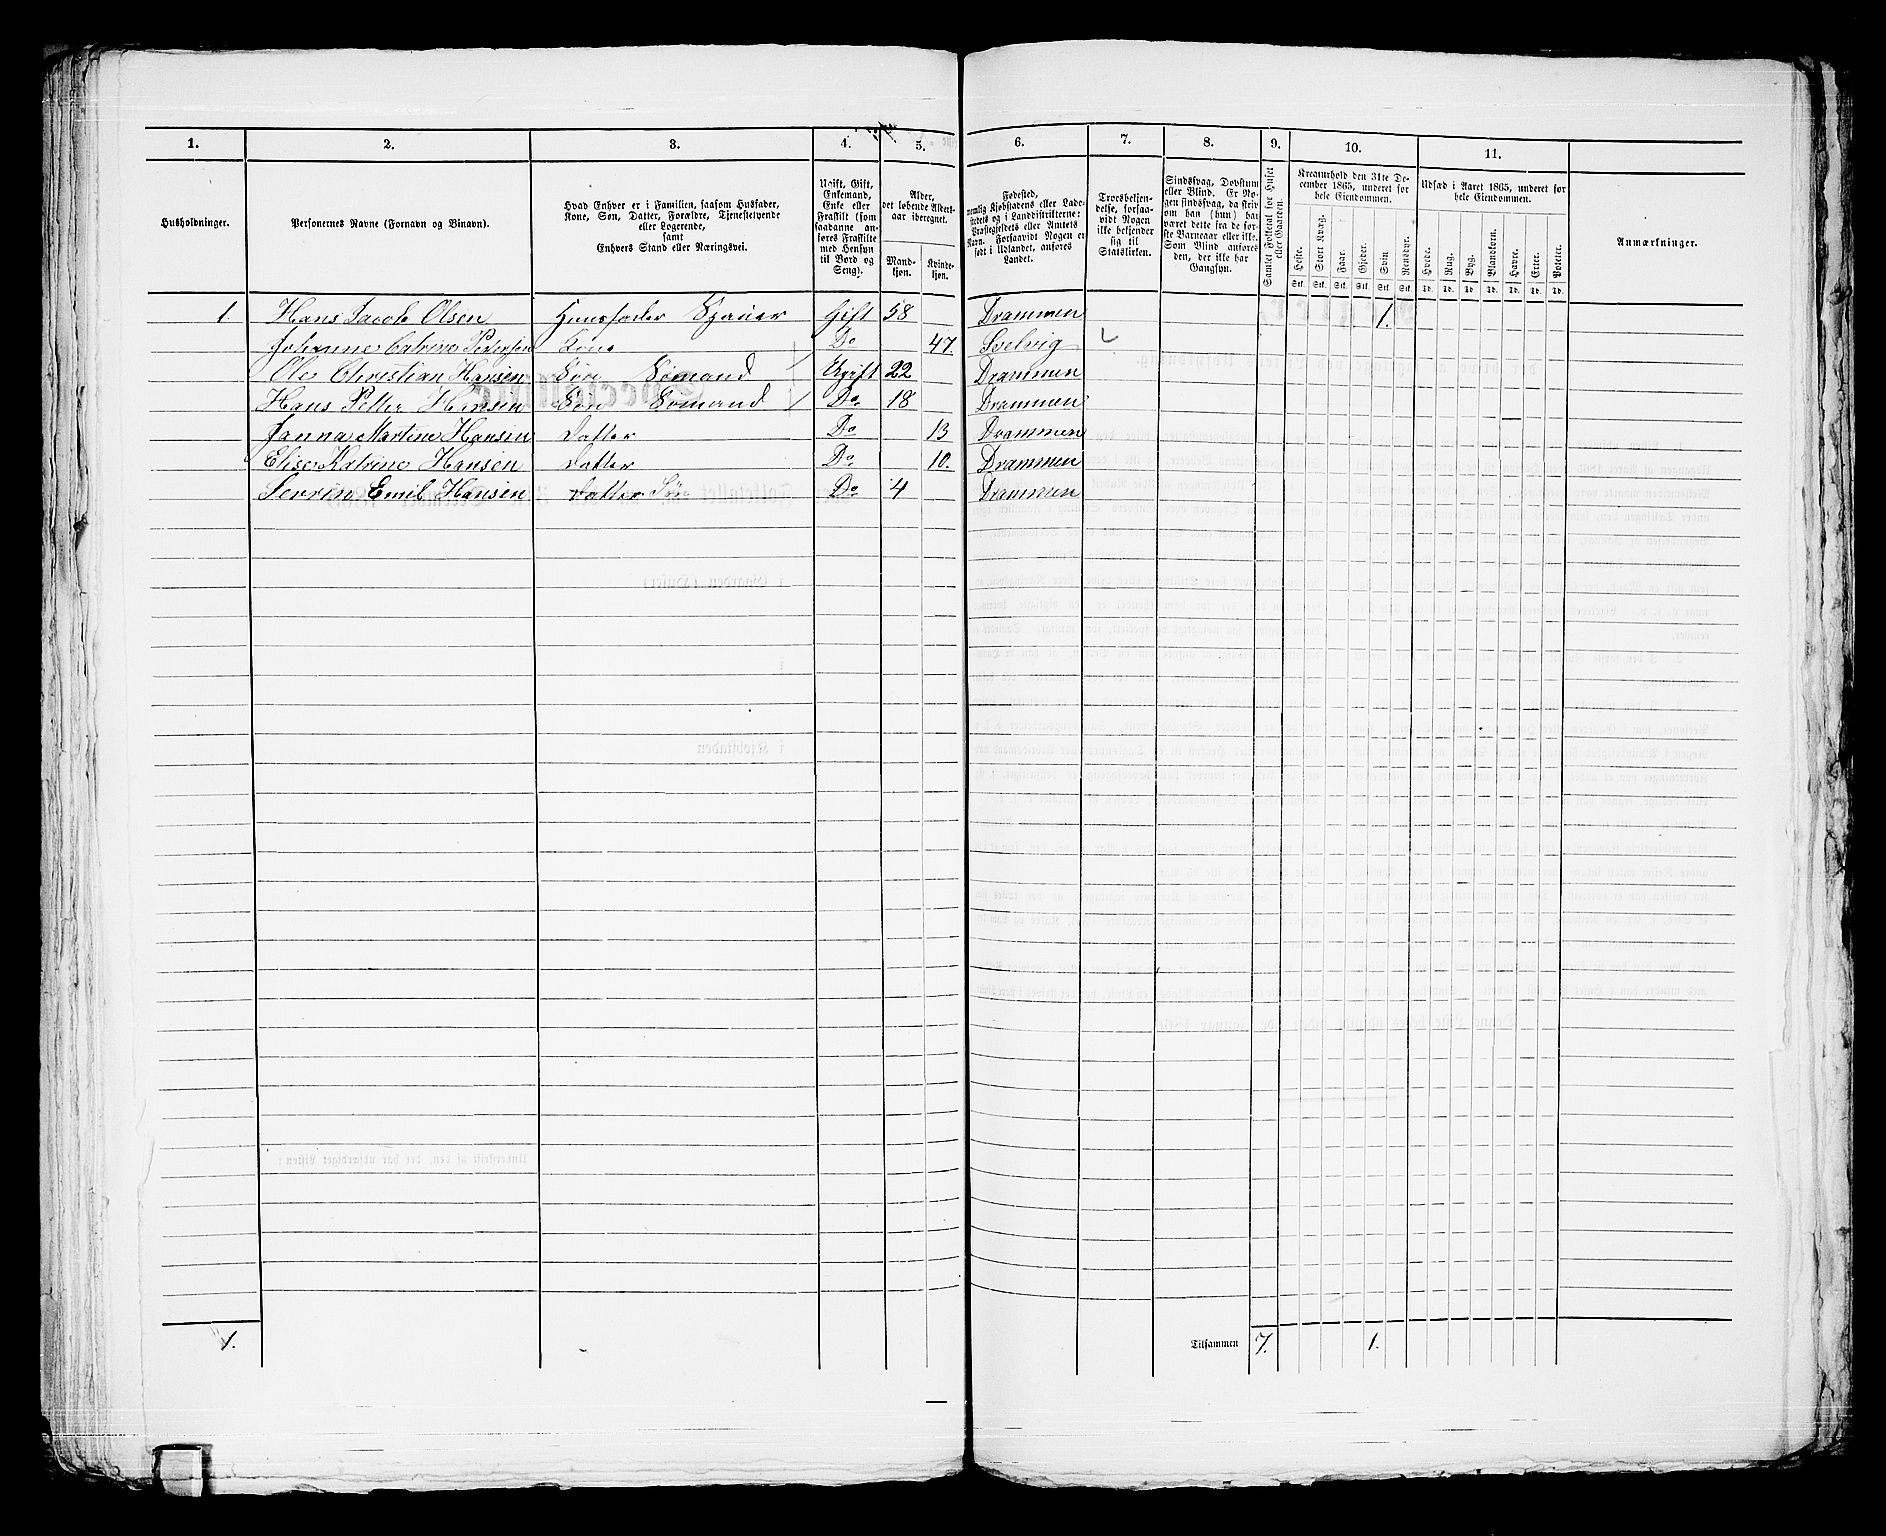 1. 2. 3. 4. 5. 6. 7. 8. 9. 10. 11.
Husholdninger.
Personernes Navne (Fornavn og Binavn).
Hvad Enhver er i Familien, saasom Husfader,
Kone, Søn, Datter, Forældre, Tjenestetyende
eller Logerende,
samt
Enhvers Stand eller Næringsvei.
Ugift, Gift,
Enkemand,
Enke eller
Fraskilt (som
saadanne an-
føres Fraskilte
med Hensyn
til Bord og
Seng).
Alder,
det løbende Alders-
aar iberegnet.
Mand-
kjøn.
Kvinde-
kjøn.
Fødested,
nemlig Kjøbstadens eller Lade-
stedets og i Landdistrikterne:
Præstegjeldets eller Amtets
Navn. Forsaavidt Nogen er
født i Udlandet, anføres
Landet.
Troesbekjen-
delse, forsaa-
vidt Nogen
ikke bekjender
sig til
Statskirken.
Sindssvag, Døvstum
eller Blind. Er No-
gen sindssvag, da skriv
om han (hun) har
været dette fra de før-
ste Barneaar eller ikke.
Som Blind anføres
den, der ikke har
Gangsyn.
Samlet Folketal for Huset
eller Gaarden.
Kreaturhold den 31te De-
cember 1865, underet for
hele Eiendommen.
Heste. Stort Kvæg. Faar. Gjeder. Svin. Rensdyr.
Stk. Stk. Stk. Stk. Stk. Stk.
Udsæd i Aaret 1865, underet for
hele Eiendommen.
Hvede. Rug. Byg. Blandkorn. Havre. Erter. Poteter.
Td. Td. Td. Td. Td. Td. Td.
Anmærkninger.
1. Hans Jacob Olsen Huusfader Gift 58 Drammen 1.
Johanne Catrine Pedersen Kone Do 47. Svelvig
Ole Christian Hansen Søn Sømand Ugift 22 Drammen
Hans Petter Hansen Søn Sømand Do 18 Drammen
Janna Martine Hansen Datter Do 13 Drammen
Elise Katrine Hansen Datter Do 10. Drammen
Severin Emil Hansen Datter Søn Do 4 Drammen
1. Tilsammen 7. 1.